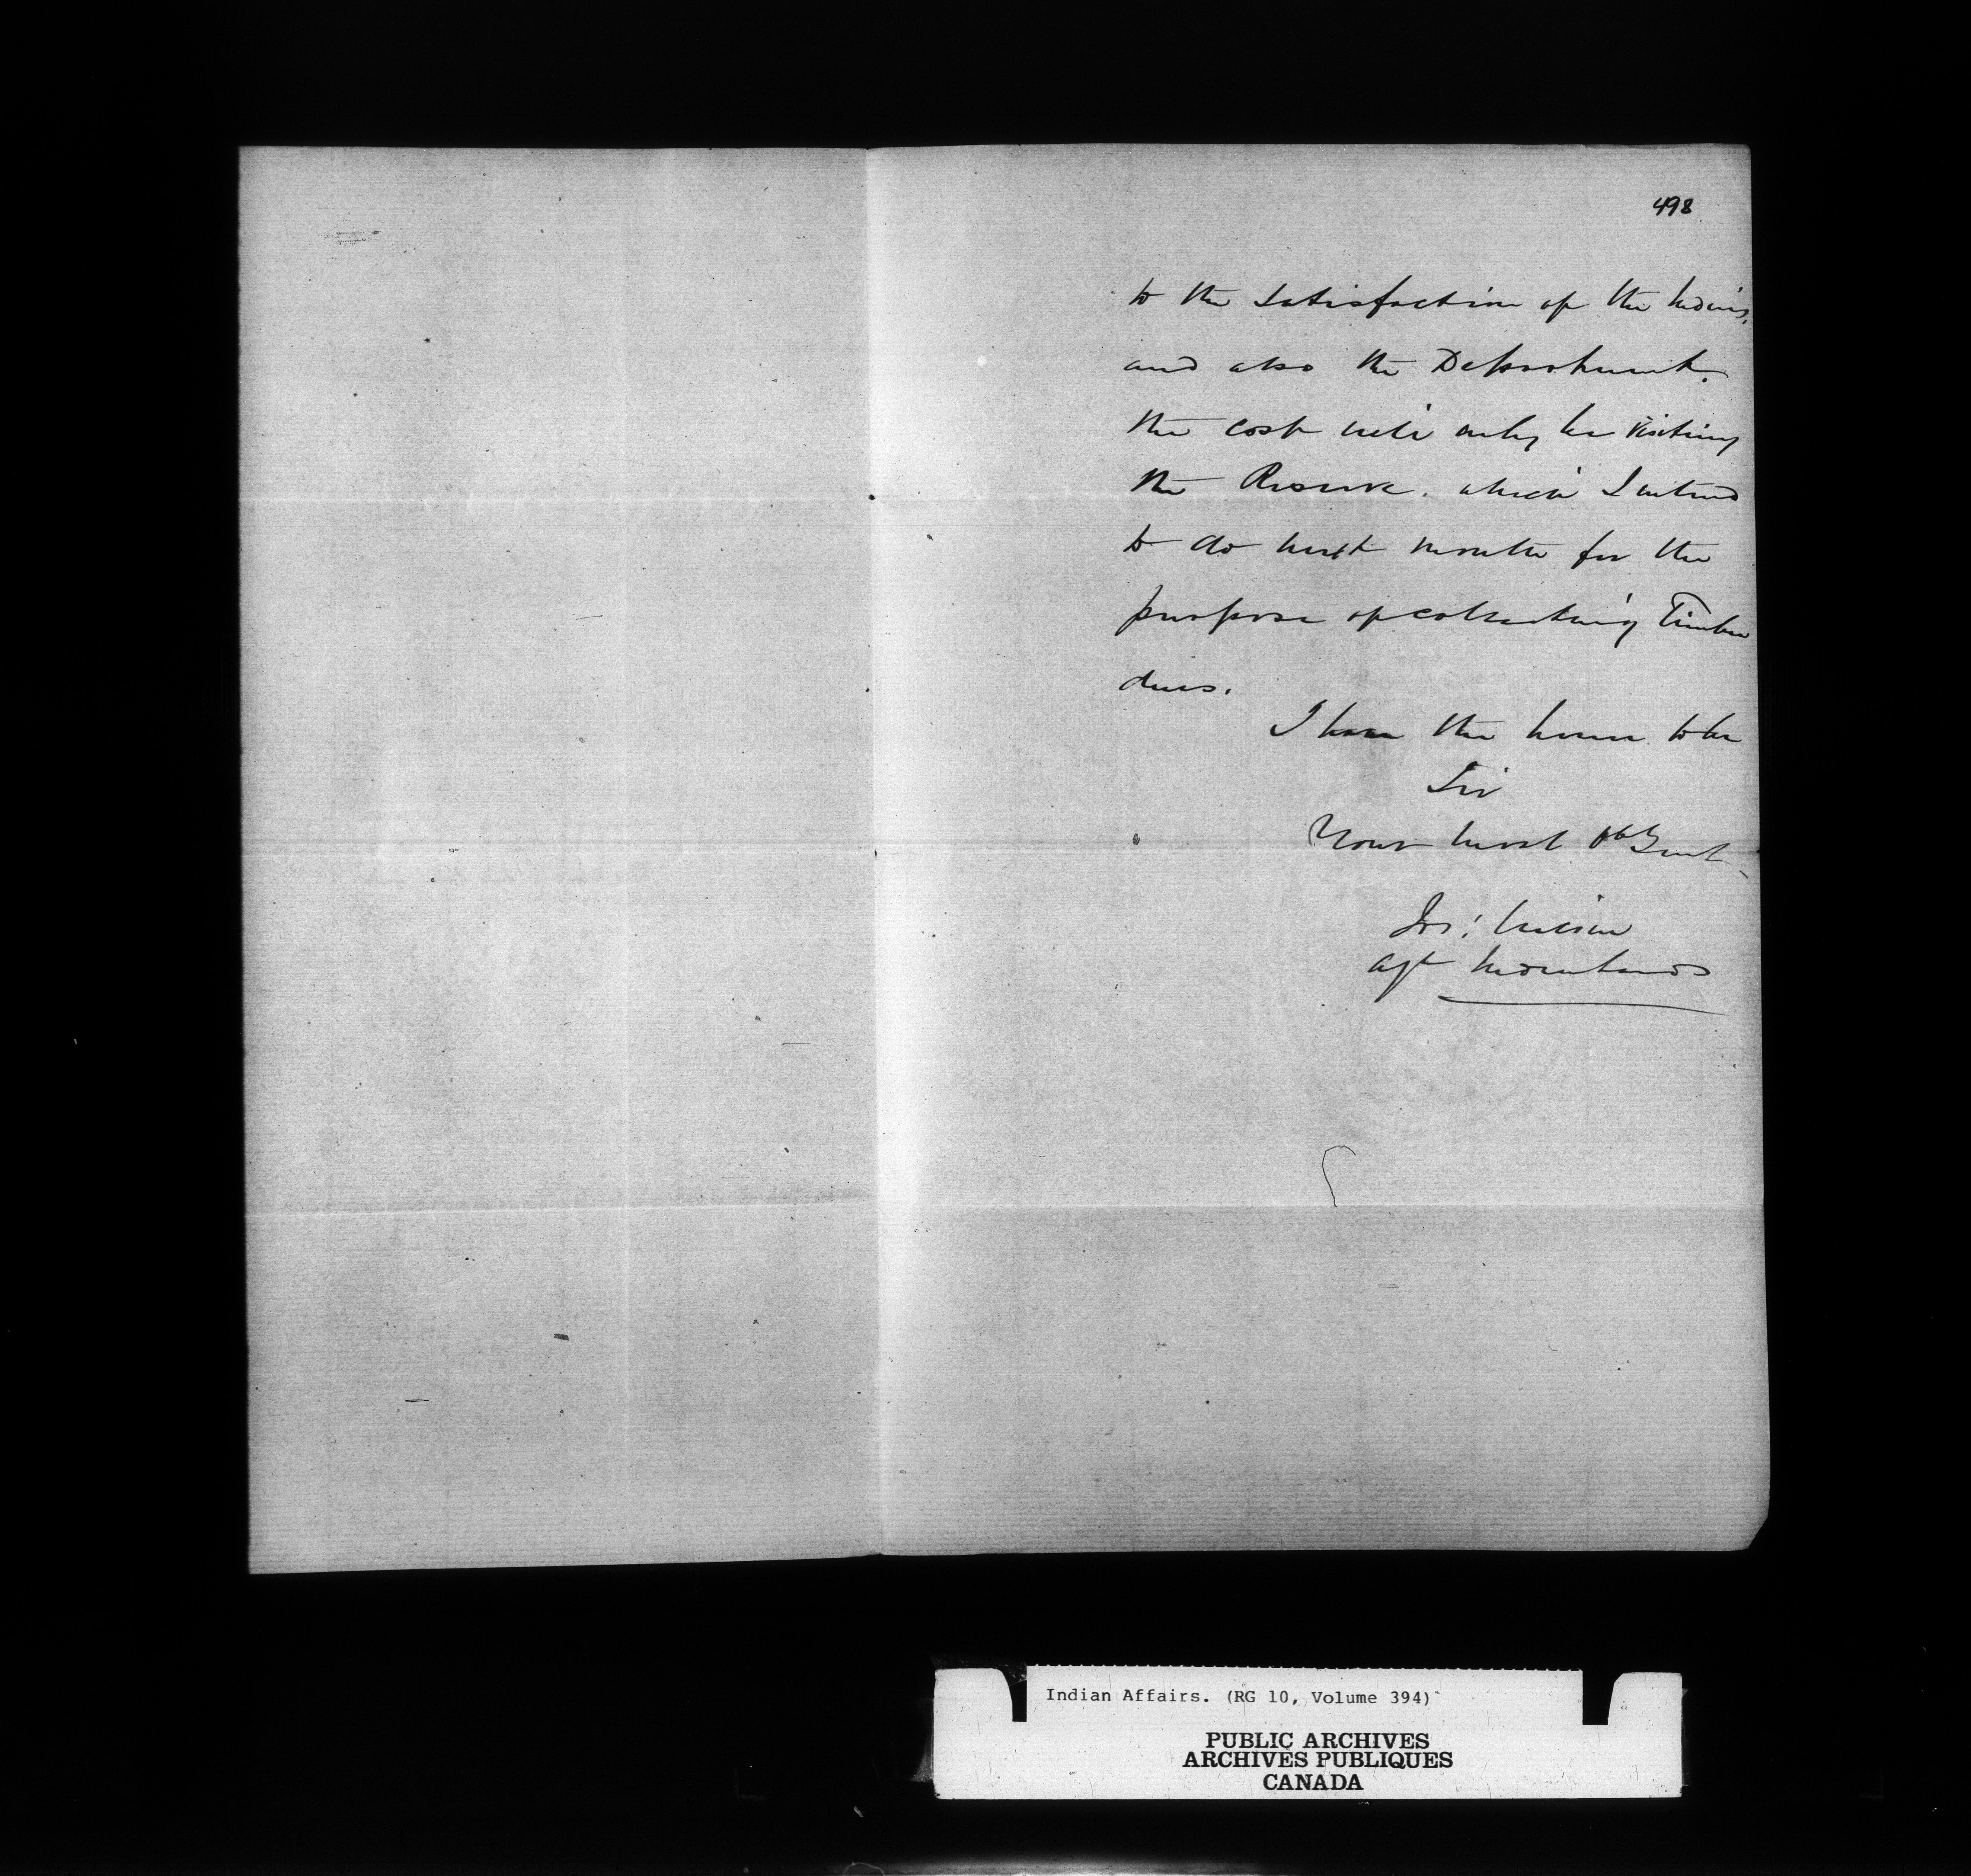 498
to the satisfaction of the Indians,
and also the Department.
the cost will only be visiting
the Reserve. which I intend
to do next month for the
purpose of collecting Timber
dues.
I have the honor to be
Sir
Your most Obt Sert
Jos: Wilson
Agt Indian Lands
Indian Affairs. (RG 10, Volume 394)
PUBLIC ARCHIVES
ARCHIVES PUBLIQUES
CANADA